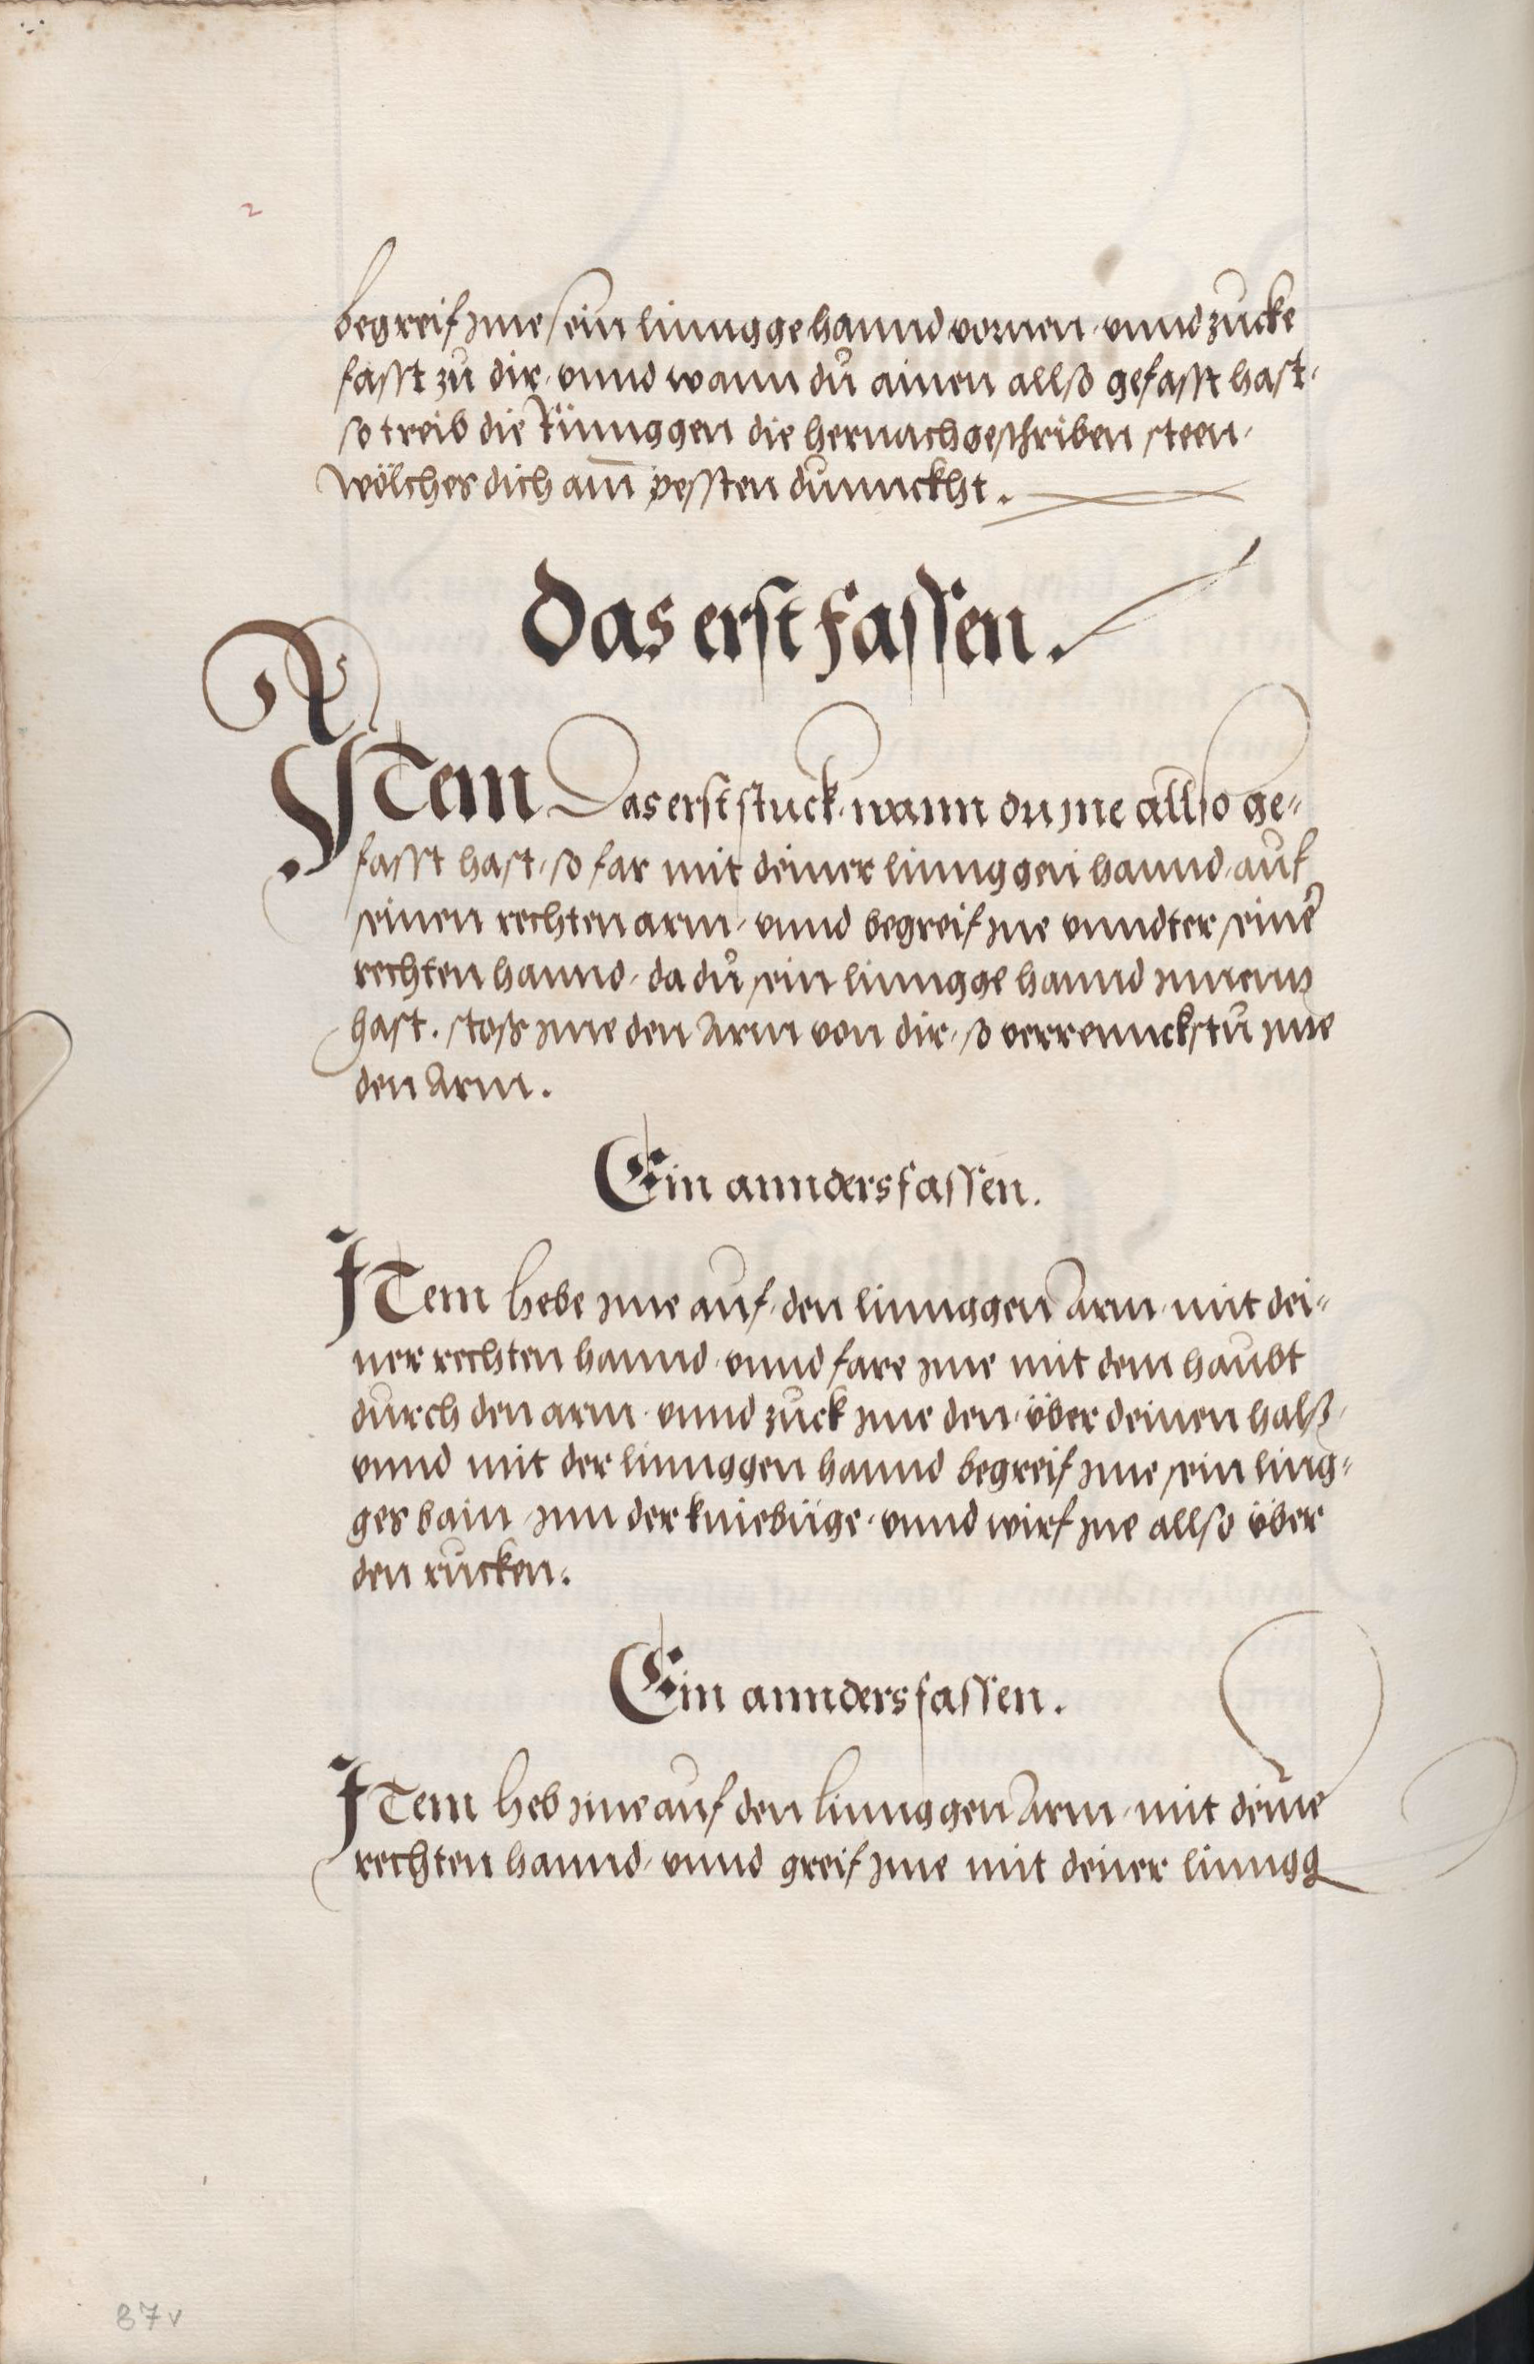 2
begreif jme sein linngge hannd vornen, vnnd zucke
fasst zů dir, vnnd wann dů ainen allso gefasst hast,
so treib die Rinnggen die hernachgeschriben steen,
wölches dich am̄ pessten dunnckht.
Das erst fassen.
JTem Das erst stuck, wann du jne allso ge=
fasst hast, so far mit deiner linnggen hannd, auf
seinen rechten arm, vnnd begreif jne vnndter seinē
rechten hannd, da dů sein linngge hannd jnnenn
hast. stoss jme den Arm von dir, so verrennckstů jme
den Arm.
Ein annders fassen.
JTem hebe jme auf, den linnggen Arm, mit dei=
ner rechten hannd, vnnd fare jme mit dem haubt
durch den arm, vnnd zuck jme den, über deinen halß,
vnnd mit der linnggen hannd begreif jme sein ling=
ges bain, jnn der kniebüge, vnnd wirf jne allso über
den rucken.
Ein annders fassen.
JTem heb jme auf den linnggen Arm, mit deine
rechten hannd, vnnd greif jme mit deiner linngg
87v